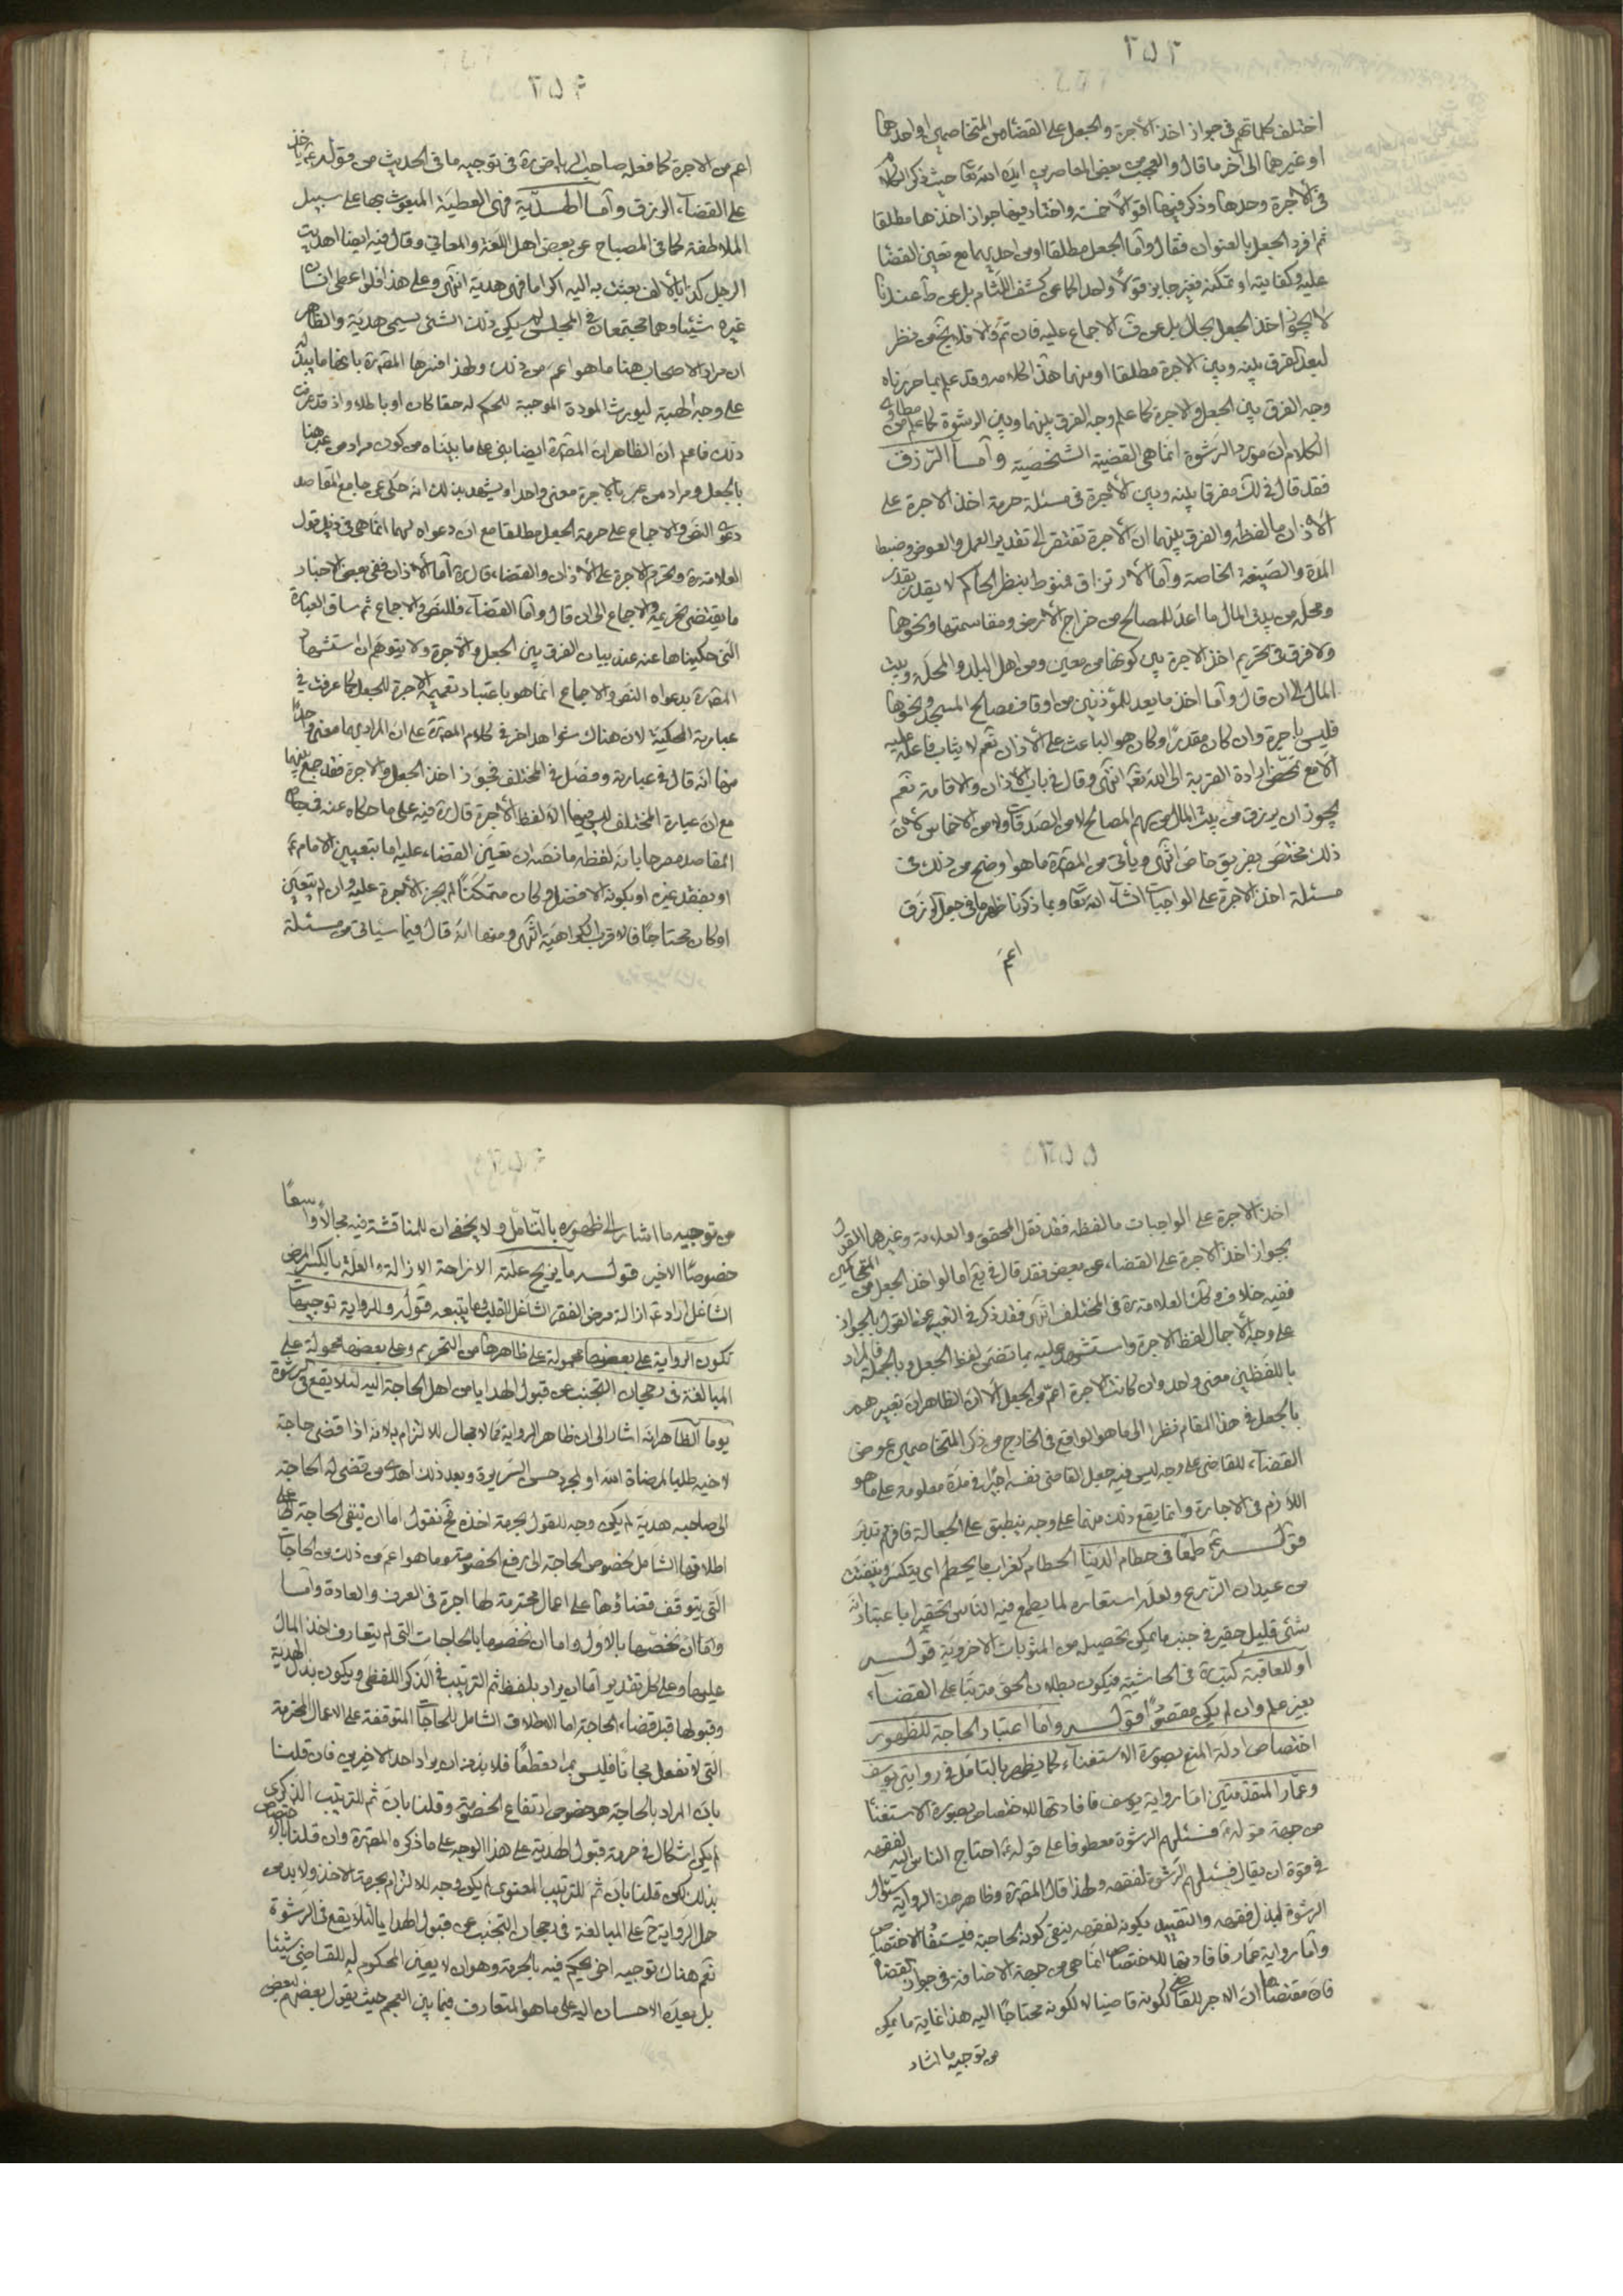 ٢٥٣
اختلف كلماتهم في جواز اخذ الاجرة والجعل على القضاء من المتخاصمين او احدهما
او غيرهما الى آخر ما قال والعجب من بعض المعاصرين ايده الله تعالى حيث ذكر
في الاجرة وحدها وذكر فيها اقوالا خمسة واختار فيها جواز اخذها مطلقا
ثم افرد الجعل بالعنوان فقال واما الجعل مطلقا او من احدهما مع تعين القضا
عليه وكفايته او تمكنه فغير جايز قولا واحدا كما عن كشف اللثام بل عن ط عندنا
لا يجوز اخذ الجعل بحال بل عن ف الاجماع عليه فان تم والا فلا يخ من نظر
لبعد الفرق بينه وبين الاجرة مطلقا او منهما هذا كلامه وقد علم بما حررناه
وجه الفرق بين الجعل والاجرة كما علم وجه الفرق بينهما وبين الرشوة كما علم من مطاوي
الكلام ان مورد الرشوة انما هي القضية الشخصية واما الرزق
فقد قال في لك مفرقا بينه وبين الاجرة في مسئلة حرمة اخذ الاجرة على
الاذان ما لفظه والفرق بينهما ان الاجرة تفتقر الى تقدير العمل والعوض وضبط
المدة والصيغة الخاصة واما الارتزاق فمنوط بنظر الحاكم لا يقدر بقدر
ومحله من بيت المال ما اعد للمصالح من خراج الارض ومقاسمتها ونحوهما
ولا فرق في تحريم اخذ الاجرة بين كونها من معين ومن اهل البلد والمحلة وبيت
المال الى ان قال واما اخذ ما يعد للمؤذنين من اوقاف مصالح المسجد ونحوها
فليس باجرة وان كان مقدرا وكان هو الباعث على الاذان نعم لا يثاب فاعله عليه
الا مع تمحض ارادة القربة الى الله تعم انتهى وقال في باب الاذان والاقامة نعم
يجوز ان يرزق من بيت المال من سهم المصالح لا من الصدقات ولا من الاخماس لان
ذلك مختص بفريق خاص انتهى ويأتي من المص ره ما هو اوضح من ذلك في
مسئلة اخذ الاجرة على الواجبات انشاء الله تعا وبما ذكرنا ظهر ما في جعل الرزق
اعم
٢٥٤
اعم من الاجرة كما فعله صاحب الرياض ره في توجيه ما في الحديث من قوله ع ياخذ
على القضاء الرزق واما الهدية فهي العطية المبعوث بها على سبيل
الملاطفة كما في المصباح عن بعض اهل اللغة والمعاني وقال فيه ايضا اهديت
الرجل كذا بالالف بعثت به اليه اكراما فهي هدية انتهى وعلى هذا فلو اعطى انسان
غيره شيئا وهما مجتمعان في المجلس لم يكن ذلك الشئ يسمى هدية والظاهر
ان مراد الاصحاب هنا ما هو اعم من ذلك ولهذا فسرها المص ره بانها ما يبذله
على وجه الهبة ليورث المودة الموجبة للحكم له حقا كان او باطلا واذ قد عرفت
ذلك فاعلم ان الظاهر ان المص ره ايضا بنى على ما بيناه من كون مراد من عبر هنا
بالجعل ومراد من عبر بالاجرة معنى واحدا ويشهد بذلك انه حكى عن جامع المقاصد
دعوى النص والاجماع على حرمة الجعل مطلقا مع ان دعواه لهما انما هي في ذيل قول
العلامة ره وتحرم الاجرة على الاذان والقضاء قال ره اما الاذان ففي بعض الاخبار
ما يقتضى تحريمه والاجماع الى ان قال واما القضاء فللنص والاجماع ثم ساق العبارة
التي حكيناها عنه عند بيان الفرق بين الجعل والاجرة ولا يتوهم ان استشهاد
المص ره بدعواه النص والاجماع انما هو باعتبار تعميمه الاجرة للجعل كما عرفت في
عبارته المحكية لان هناك شواهد اخر في كلام المص ره على ان المراد بهما معنى واحد
منها انه قال في عبارته وفصل في المختلف فجوز اخذ الجعل والاجرة فقد جمع بينهما
مع ان عبارة المختلف ليس فيها الا لفظ الاجرة قال ره فيه على ما حكاه عنه في جامع
المقاصد مصرحا بانه لفظه ما نصه ان تعين القضاء عليه اما بتعيين الامام ع
او بفقد غيره او بكونه الافضل وكان متمكنا لم يجز الاجرة عليه وان لم يتعين
او كان محتاجا فالاقرب الكراهية انتهى ومنها انه قال فيما سيأتي من مسئلة
٢٥٥
اخذ الاجرة على الواجبات ما لفظه فقد نقل المحقق والعلامة وغيرهما القول
بجواز اخذ الاجرة على القضاء عن بعض فقد قال في يع اما لو اخذ الجعل من المتحاكمين
ففيه خلاف وكك العلامة ره في المختلف انتهى فقد ذكر في التعبير عن القول بالجواز
على وجه الاجمال لفظ الاجرة واستشهد عليه بما تضمن لفظ الجعل وبالجملة فالمراد
باللفظين معنى واحد وان كانت الاجرة اعم من الجعل الا ان الظاهر ان تعبيرهم
بالجعل في هذا المقام نظرا الى ما هو الواقع في الخارج من ذكر المتخاصمين عوض
القضاء للقاضي على وجه ليس فيه جعل القاضي نفسه اجيرا في مدة معلومة على ما هو
اللازم في الاجارة وانما يقع ذلك منهما على وجه ينطبق على الجعالة فافهم تدبر
قوله ثم طمعا في حطام الدنيا الحطام كغراب ما يحطم اى يتكسر ويتفتت
من عيدان الزرع ولعله استعاره لما يطمع فيه الناس تحقيرا باعتبار انه
شئ قليل حقير في جنب ما يمكن تحصيله من المثوبات الاخروية قوله
او للعاقبة كتب ره في الحاشية فيكون بطلان الحق مترتبا على القضاء
بغير علم وان لم يكن مقصودا قوله واما اعتبار الحاجة لظهور
اختصاص ادلة المنع بصورة الاستغناء كما يظهر بالتامل في روايتى يوسف
وعمار المتقدمتين اما رواية يوسف فافادتها للاختصاص بصورة الاستغناء
من جهة قوله ع فسئلهم الرشوة معطوفا على قوله ع احتاج الناس اليه لفقهه
في قوة ان يقال فسئلهم الرشوة لفقهه ولهذا قال المص ره وظاهر هذه الرواية سؤال
الرشوة لبذل فقهه والتقييد بكونه لفقهه ينفي كونه لحاجته فليستفاد الاختصاص
واما رواية عمار فافادتها للاختصاص انما هي من جهة الاضافة في اجور القضاة
فان مقتضاها ان الاجر للقاضي لكونه قاضيا لا لكونه محتاجا اليه هذا غاية ما يمكن
من توجيه ما اشار
٢٥٦
من توجيه ما اشار الى ظهوره بالتامل ولا يخفى ان للمناقشة فيه مجالا واسعا
خصوصا الاخير قوله ما يزيح علته الازاحة الازالة والعلة بالكسر المرض
الشاغل اراد ع ازالة مرض الفقر الشاغل للقلب وما يتبعه قوله وللرواية توجيهات
تكون الرواية على بعضها محمولة على ظاهرها من التحريم وعلى بعضها محمولة على
المبالغة في رجحان التجنب عن قبول الهدايا من اهل الحاجة اليه لئلا يقع في الرشوة
يوما الظاهر انه اشار الى ان ظاهر الرواية مما لا مجال للالتزام به لانه اذا قضى حاجة
لاخيه طلبا لمرضاة الله او لمجرد حسن السريرة وبعد ذلك اهدى من قضى له الحاجة
الى صاحبه هدية لم يكن وجه للقول بحرمة اخذه فح نقول اما ان نبقى الحاجة على
اطلاقها الشامل لخصوص الحاجة الى رفع الخصومة وما هو اعم من ذلك من الحاجات
التي يتوقف قضاؤها على اعمال محترمة لها اجرة في العرف والعادة واما
واما ان نخصها بالاول واما ان نخصها بالحاجات التي لم يتعارف اخذ المال
عليها وعلى كل تقدير اما ان يراد بلفظ ثم الترتيب في الذكر اللفظي ويكون بذل الهدية
وقبولها قبل قضاء الحاجة اما الاطلاق الشامل للحاجات المتوقفة على الاعمال المحترمة
التي لا تفعل مجانا فليس بمراد قطعا فلا بد من ان يراد احد الاخيرين فان قلنا
بان المراد بالحاجة هو خصوص ارتفاع الخصومة وقلنا بان ثم للترتيب الذكرى
لم يكن اشكال في حرمة قبول الهدية على هذا الوجه على ما ذكره المص ره وان قلنا باختصاص
بذلك لكن قلنا بان ثم للترتيب المعنوى لم يكن وجه للالتزام بحرمة الاخذ ولا بد من
حمل الرواية ح على المبالغة في رجحان التجنب عن قبول الهدايا لئلا يقع في الرشوة
نعم هناك توجيه اخر يحكم فيه بالحرمة وهو ان لا يعين المحكوم له للقاضي شيئا
بل يعده الاحسان اليه على ما هو المتعارف فيما بين العجم حيث يقول بعضهم لبعض